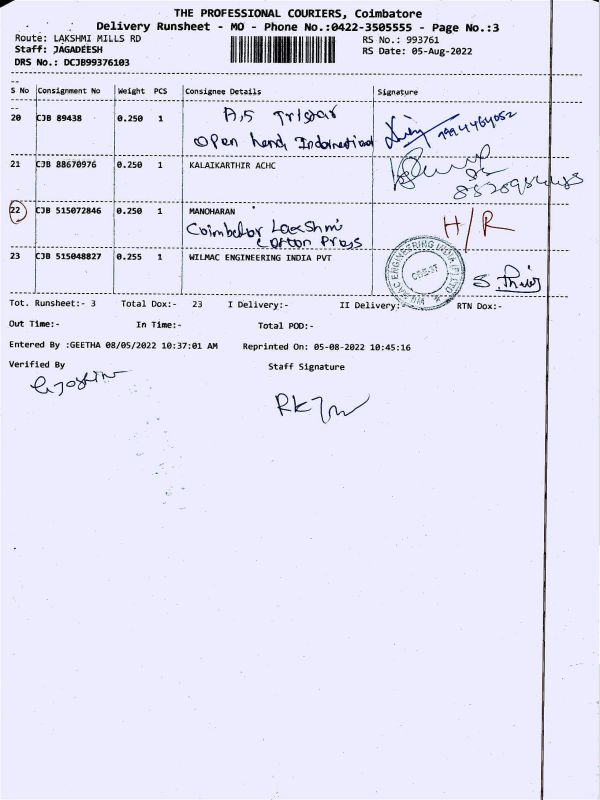 THE PROFESSIONAL COURIERS, Coimbatore
Delivery Runsheet - MO - Phone No.:0422-3505555 - Page No.:3
Route: LAKSHMI MILLS RD
RS No.: 993761
Staff: JAGADEESH
RS Date: 05-Aug-2022
DRS No.: DCJB99376103
S No Consignment No Weight PCS Consignee Details Signature
20 CJB 89438 0.250 1
Open hend International
21 CJB 88670976 0.250 1 KALAIKARTHIR ACHC
22 CJB 515072846 0.250 1 MANOHARAN H/R
Coimbator Laxshmi
Cotton Press
23 CJB 515048827 0.255 1 WILMAC ENGINEERING INDIA PVT
Tot. Runsheet:- 3 Total Dox:- 23 I Delivery:- II Delivery:- RTN Dox:-
Out Time:- In Time:- Total POD:-
Entered By :GEETHA 08/05/2022 10:37:01 AM Reprinted On: 05-08-2022 10:45:16
Verified By Staff Signature